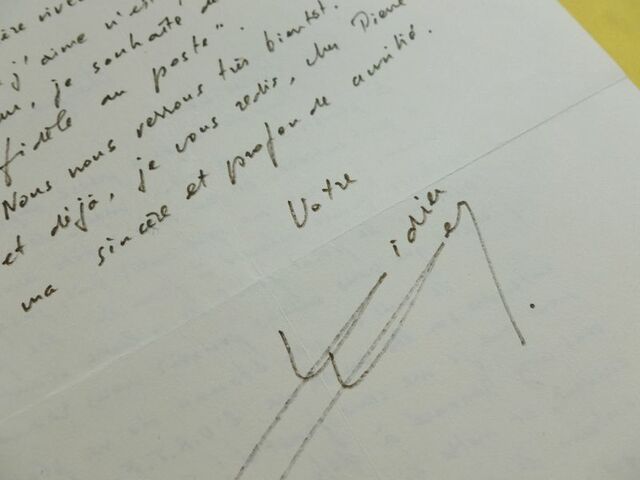 j'aime n'est
, je souhaite de
fidèle au poste".
Nous nous verrons très bientôt.
et déjà, je vous redis, cher Pierre
ma sincère et profonde amitié.
Votre